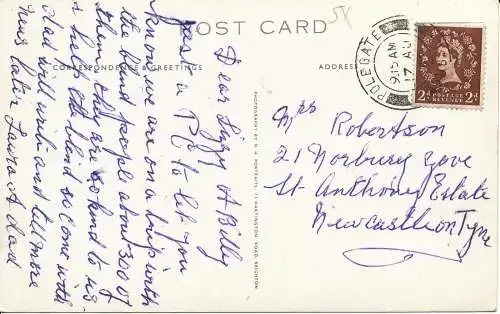 POST CARD
5x
CORRESPONDENCE & GREETINGS
ADDRESS
Dear Lizzy & Billy
Just a P.C. to let you
know we are on a trip with
the blind people about 300 of
them they are so kind to us
I help the blind so come with
dad will write and tell more
news later Laura & dad
PHOTOGRAPHY BY
BRIGHTON
POLEGATE
9 15 AM
17 AU
2d POSTAGE REVENUE 2d
Mrs Robertson
21 Norbury Gove
St. Anthonys Estate
Newcastle on Tyne